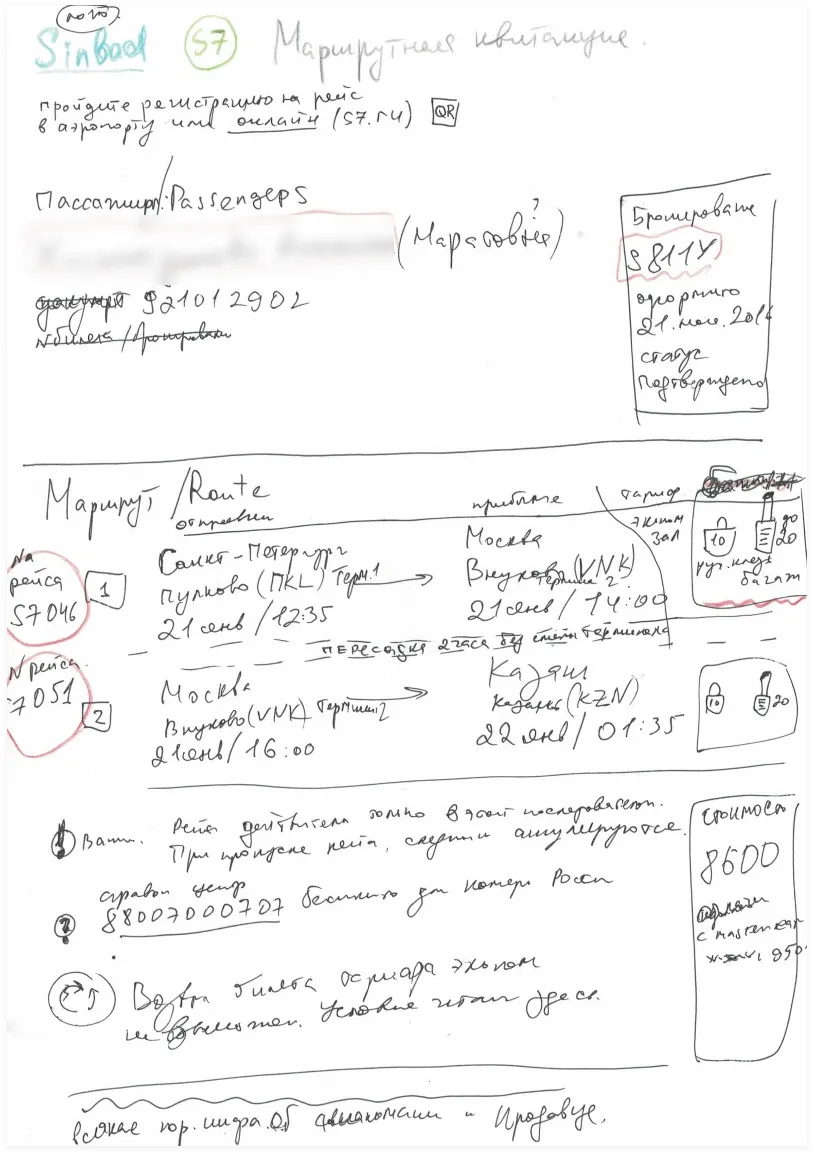 лого
Sinbad S7 Маршрутная квитанция.
пройдите регистрацию на рейс
в аэропорту или онлайн (S7.ru) QR
Пассажиры/Passengers
(Маратовна) ?
921012902
Бронирование
S811Y
21. 
статус
Подтверждено
Маршрут/Route
отправлен
прибытие
тариф
эконом
№
рейса
S7 046
1
Санкт-Петербург
Пулково (ПКL) Терм.1
21 янв / 12:35
Москва
Внуково (VNK)
Терминал 2
21 янв / 14:00
10 до 20
руч. кладь
багаж
ПЕРЕСАДКА 2 часа без смены терминала
№ рейса
7 051
2
Москва
Внуково (VNK) Терминал 2
21 янв / 16:00
Казань
Казань (KZN)
22 янв / 01:35
10 20
Рейсы действительны только в этой последоват.
При пропуске рейса, следующий аннулируются.
справоч центр
88007000707 бесплатно для номеров России
Возврат билета тарифа эконом
невозможен. Условие читать здесь.
стоимость
8600
с mastercard
950
всякая юр. инфа. Об авиакомпании и Продавце.